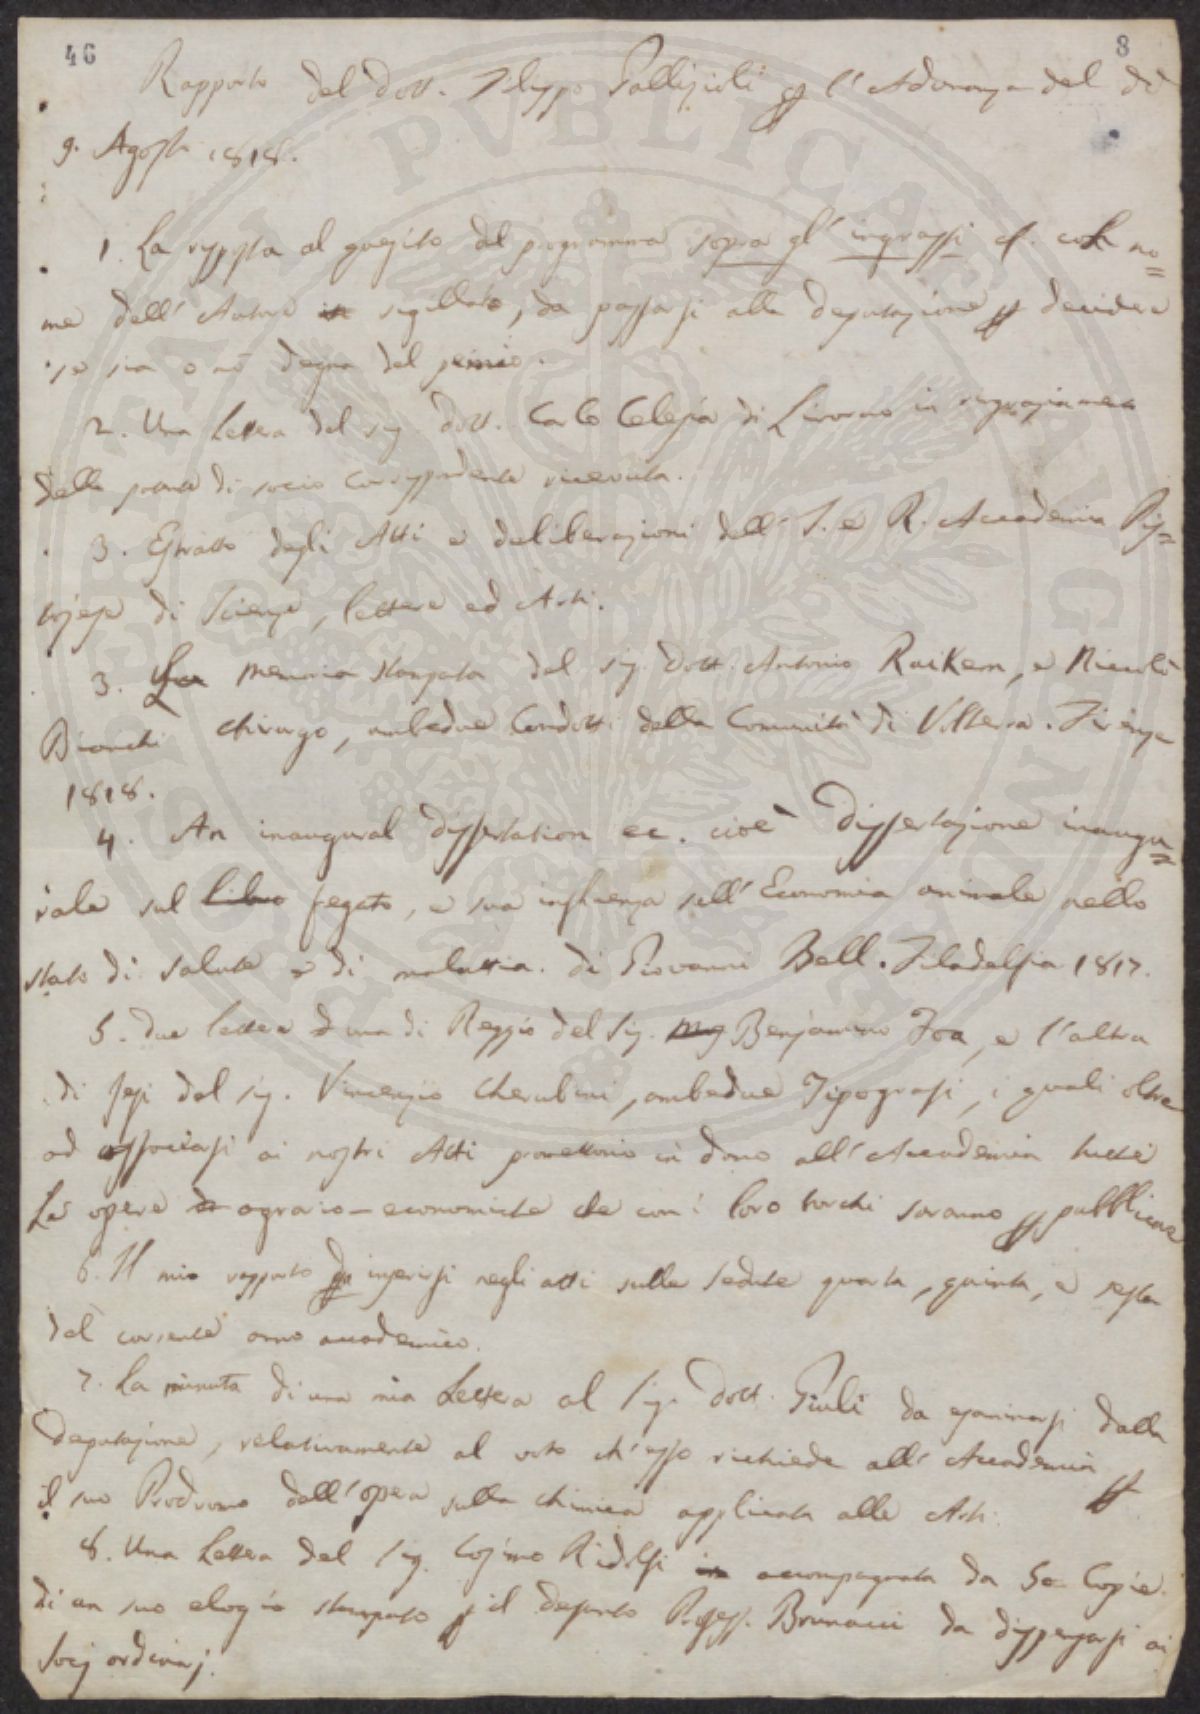 46 8
Rapporto del Dott. Filippo Gallizioli per l'Adunanza del dì
9. Agosto 1818.
1. La risposta al quesito del programma sopra gl'ingrassi &. col no=
me dell'Autore in sigillato, da passarsi alla deputazione per decidere
se sia o nò degna del premio.
2. Una Lettera del sig. Dott. Carlo Calesia di Livorno in ringraziamen
della patente di socio corrispondente ricevuta.
3. Estratto degli Atti e deliberazioni dell'I. e R. Accademia Pis=
tojese di Scienze, lettere ed Arti.
3. La memoria stampata del sig. Dott. Antonio Raikem, e Niccolò
Bianchi chirurgo, ambedue Condotti della Comunità di Volterra. Firenze
1818.
4. An inaugural dissertation ec. cioè Dissertazione inaugu=
rale sul libro fegato, e sua influenza sull'Economia animale nello
stato di salute e di malattia. di Giovanni Bell. Filadelfia 1817.
5. due lettere una di Reggio del Sig. Benjamino Foa, e l'altra
di Jesi del sig. Vincenzio Cherubini, ambedue Tipografi, i quali oltre
ad associarsi ai nostri Atti promettono in dono all'Accademia tutte
Le opere agrario-economiche che con i loro torchi saranno per pubblicare
6. Il mio rapporto da inserirsi negli atti sulle sedute quarta, quinta, e sesta
del corrente anno accademico.
7. La minuta di una mia Lettera al Sig. Dott. Giuli da esaminarsi dalla
deputazione, relativamente al voto ch'esso richiede all'Accademia per
il suo Prodromo dell'opera sulla chimica applicata alle Arti.
8. Una Lettera del Sig. Cosimo Ridolfi in accompagnata da 50 Copie
di un suo elogio stampato per il defunto Profess. Brunacci da dispensarsi ai
socj ordinarj.